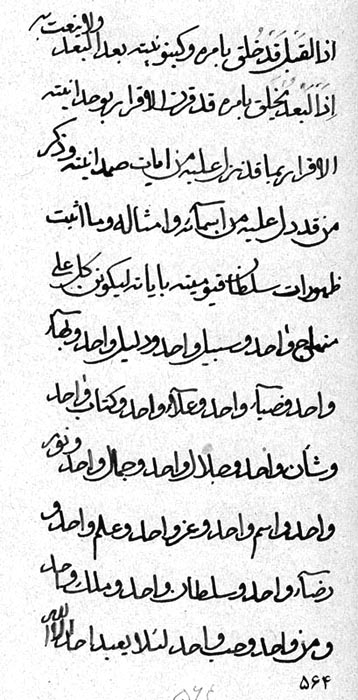 اذ القبل قد خلق بامره وكينونيته بعد البعد ولا ينعت به
اذ البعد يخلق بامره قد قرنت الاقرار بوحدانيته
الاقرار بما قد نزل عليه من ايات صمدانيته وذكر
من قد دل عليه من اسمائه وامثاله وما اثبت
ظهورات سلطان قيوميته باياته ليكونن كل على
منهاج واحد وسبيل واحد ودليل واحد وبهاء
واحد وضياء واحد وعلاء واحد وكتاب واحد
وشأن واحد وجلال واحد وجمال واحد ونور
واحد واسم واحد وعز واحد وعلم واحد و
رضاء واحد وسلطان واحد وملك واحد
ومن واحد وحب واحد لئلا يعبد احد الا الله
۵۶۴